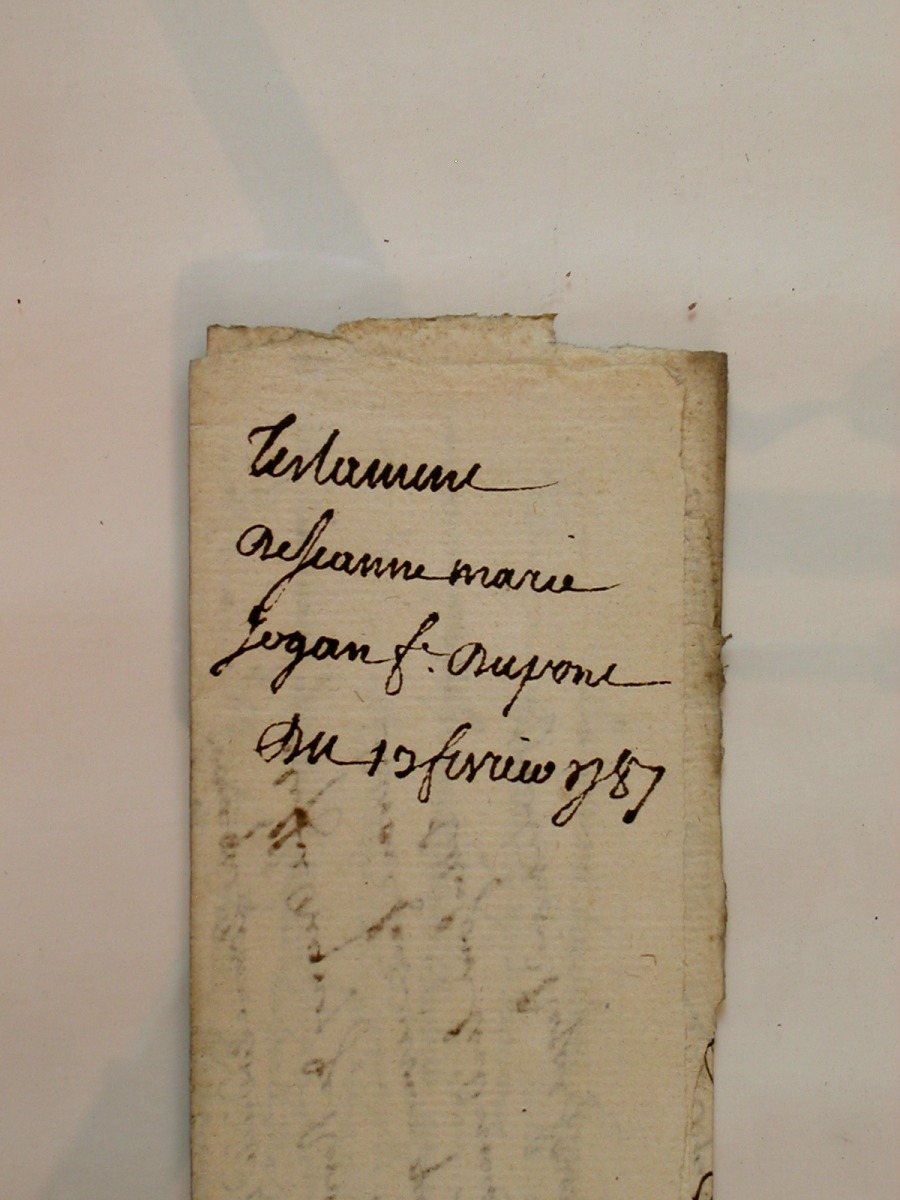 Testament
De Jeanne marie
Jogan f.e Dupont
Du 13 fevrier 1787